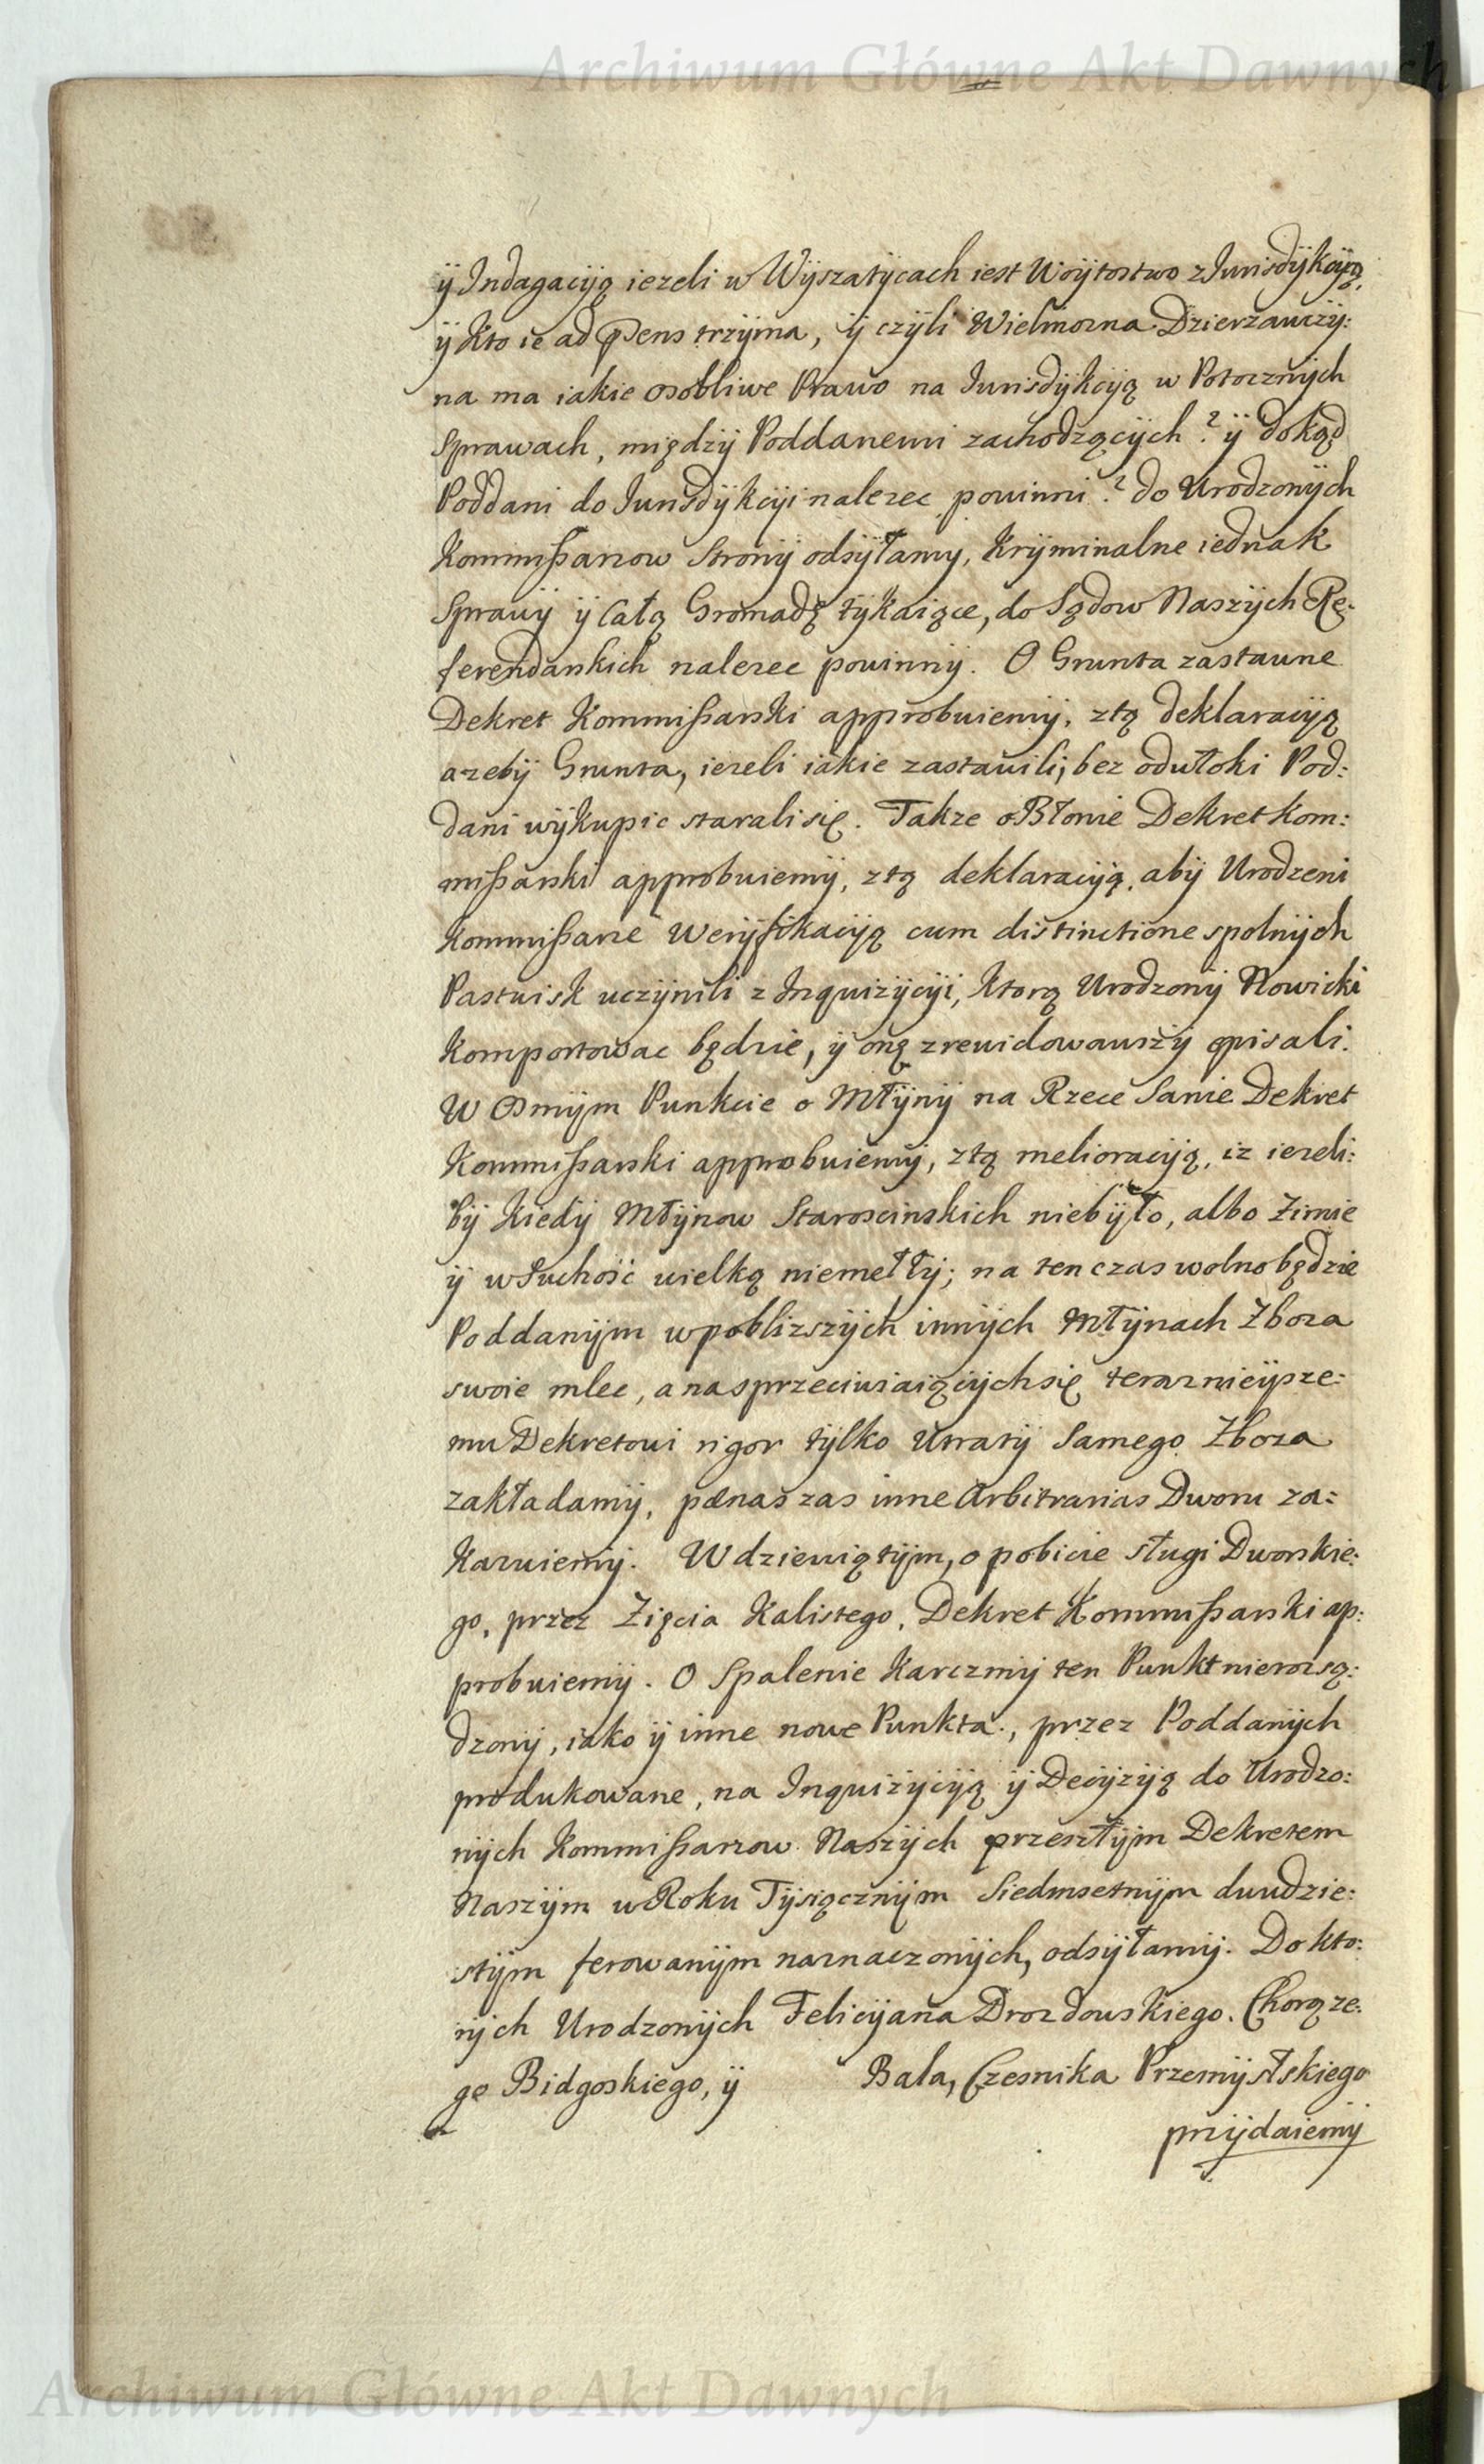 Archiwum Główne Akt Dawnych
ÿ Indagacÿą iezeli w Wÿszatÿcach iest Woÿtostwo z Jurisdÿkcÿą,
ÿ kto ie ad Præns trzÿma, ÿ czÿli Wielmozna Dzierzawczÿ:
na ma iakie osobliwe Prawo na Jurisdÿkcÿą w Potocznÿch
Sprawach, międzÿ Poddanemi zachodzącÿch? ÿ dokąd
Poddani do Jurisdÿkcÿi nalezec powinni? do Urodzonÿch
Kommißarzow Stronÿ odsÿłamÿ, Krÿminalne iednak
Sprawÿ ÿ Całą Gromadę tÿkaiące, do Sądow Naszÿch Re:
ferendarskich nalezec powinnÿ. O Grunta zastawne
Dekret Kommißarski approbuiemÿ, z tą deklaracÿą
azebÿ Grunta, iezeli iakie zastawili, bez odwłoki Pod:
dani wÿkupic starali się. Takze o Błonie Dekret Kom:
mißarski approbuiemÿ, z tą deklaracÿą, abÿ Urodzeni
Kommißarze Werÿfikacÿą cum distinctione spolnÿch
Pastwisk uczÿnili z Inquizÿcÿi, ktorą Urodzonÿ Nowicki
komportowac będzie, ÿ oną zrewidowawszÿ opisali.
W Osmÿm Punkcie o Młÿnÿ na Rzece Sanie Dekret
Kommißarski approbuiemÿ, z tą melioracÿą, iz iezeli:
bÿ kiedÿ Młÿnow Staroscinskich niebÿło, albo Zimie
ÿ w Suchość wielką niemełłÿ; na ten czas wolno będzie
Poddanÿm w poblizszÿch innÿch Młÿnach Zboza
swoie mlec, a na sprzeciwiaiącÿch się teraznieÿsze:
mu Dekretowi rigor tÿlko Utratÿ Samego Zboza
zakładamÿ, pœnas zas inne Arbitrarias Dworu za:
kazuiemÿ. W dziewiątÿm, o pobicie sługi Dworskie:
go, przez Zięcia Kalistego, Dekret Kommißarski ap:
probuiemÿ. O Spalenie Karczmÿ ten Punkt nierozsą:
dzonÿ, iako ÿ inne nowe Punkta, przez Poddanÿch
produkowane, na Inquizÿcÿą ÿ Decÿzÿą do Urodzo:
nÿch Kommißarzow Naszÿch przeszłÿm Dekretem
Naszÿm w Roku Tÿsiącznÿm Siedmsetnÿm dwudzie:
stÿm ferowanÿm naznaczonÿch, odsÿłamÿ. Do kto:
rÿch Urodzonÿch Felicÿana Drozdowskiego, Chorąze:
go Bidgoskiego, ÿ Bala, Czesnika Przemÿslskiego
przÿdaiemÿ
Archiwum Główne Akt Dawnych